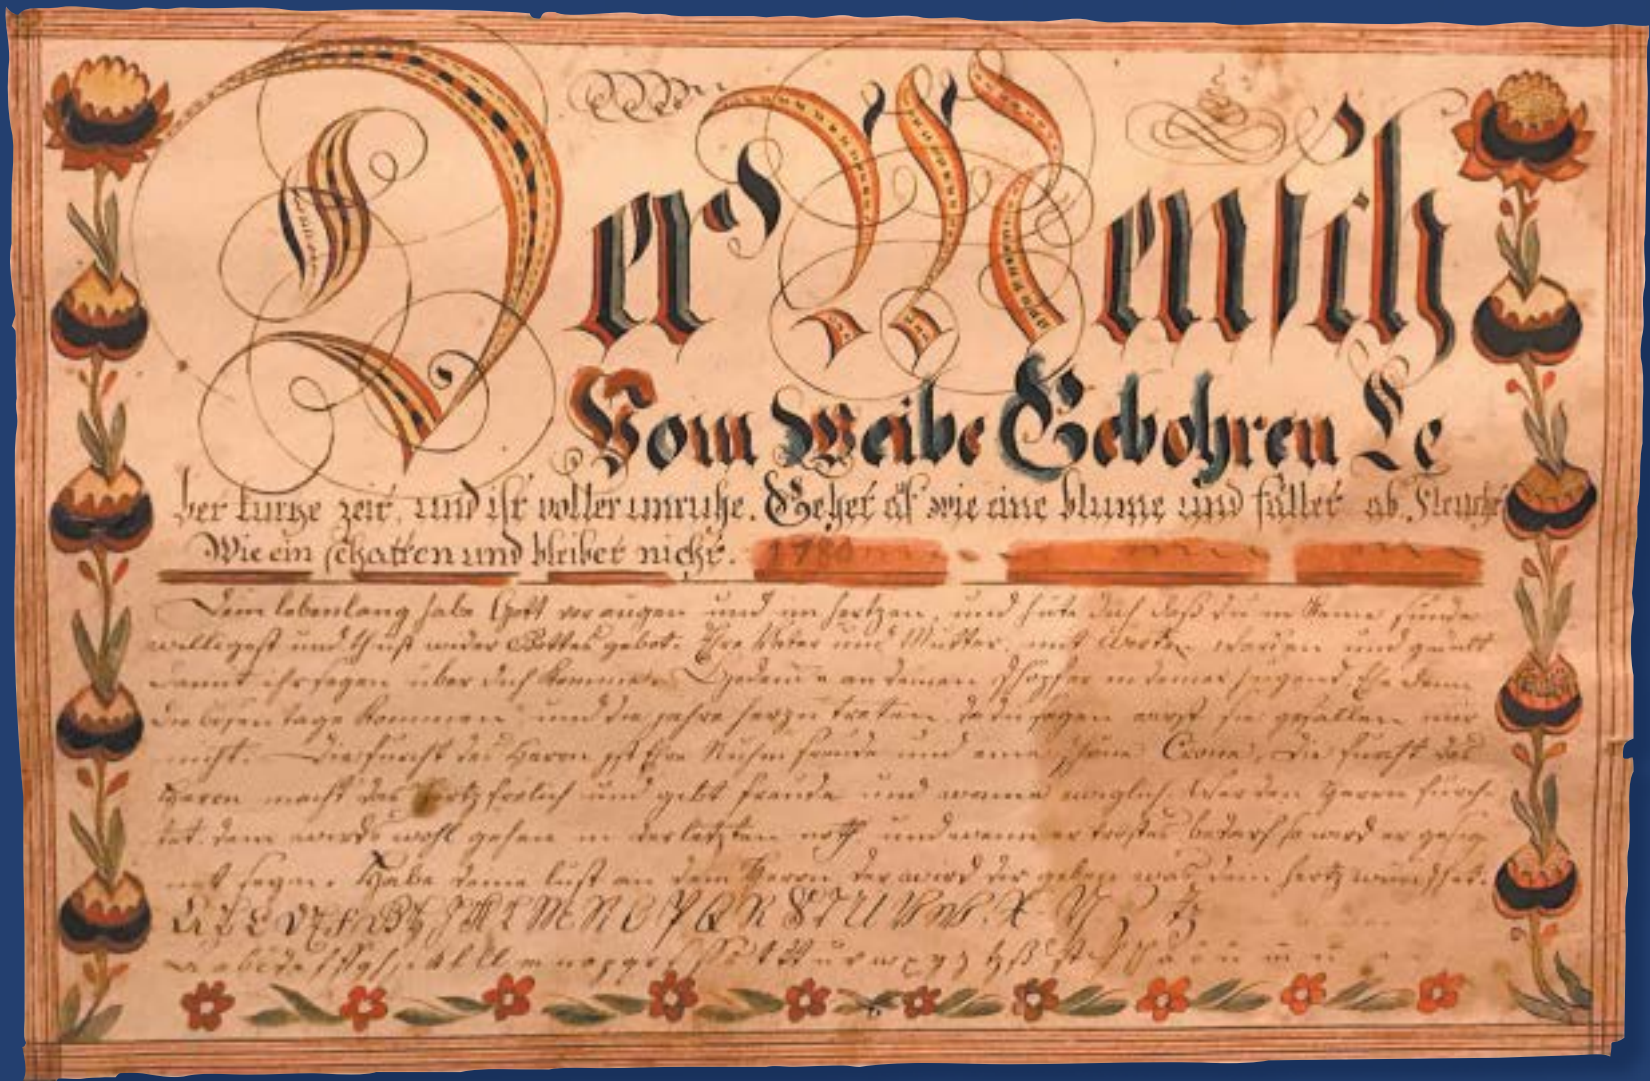 Der Mensch
Vom Weibe Gebohren Le
bet kurtze zeit, und ist voller unruhe. Gehet uf wie eine blume und fället ab, fleucht
Wie ein schatten und bleibet nicht. 1780
Dein lebenlang habe Gott vor augen und im hertzen, und hüte dich daß du in keine sünde
willigest und thust wider Gottes gebot. Ehre Vater und Mutter, mit Worten wercken und gedult
damit ihr segen über dich komme. Gedencke an deinen Schöpfer in deiner jugend, Ehe denn
die bösen tage kommen und die jahre herzu treten, da du sagen wirst sie gefallen mir
nicht. Die furcht des Herrn ist Ehre Ruhm freude und eine schöne Crone. Die furcht des
Herrn macht das Hertz frölich und gibt freude und wonne ewiglich. Wer den Herrn fürch-
tet, dem wirds wohl gehen in der letzten noth, und wenn er trostes bedarf so wird er geseg
net seyn. Habe deine lust an dem Herrn, der wird dir geben was dein hertz wünschet.